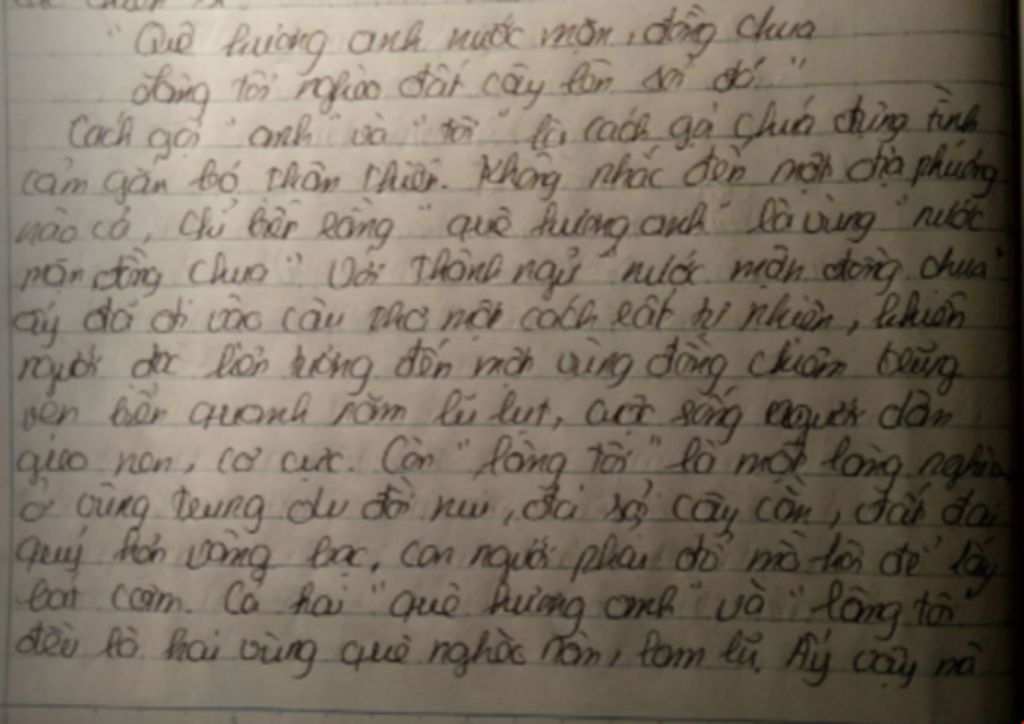 "Quê hương anh nước mặn, đồng chua
Làng tôi nghèo đất cày lên sỏi đá."
Cách gọi "anh" và "tôi" là cách gọi chứa đựng tình
cảm gắn bó thân thiện. Không nhắc đến một địa phương
nào cả, chỉ biết rằng "quê hương anh" là vùng "nước
mặn đồng chua" Với thành ngữ "nước mặn đồng chua"
ấy đã đi vào câu thơ một cách rất tự nhiên, khiến
người đọc liên tưởng đến một vùng đồng chiêm trũng
ven biển quanh năm lũ lụt, cuộc sống người dân
gieo neo, cơ cực. Còn "làng tôi" là một làng nghèo
ở vùng trung du đồi núi, đá sỏi cây cằn, đất đai
quý hơn vàng bạc, con người phải đổ mồ hôi để lấy
bát cơm. Cả hai "quê hương anh" và "làng tôi"
đều là hai vùng quê nghèo nàn, lam lũ. Ấy vậy mà